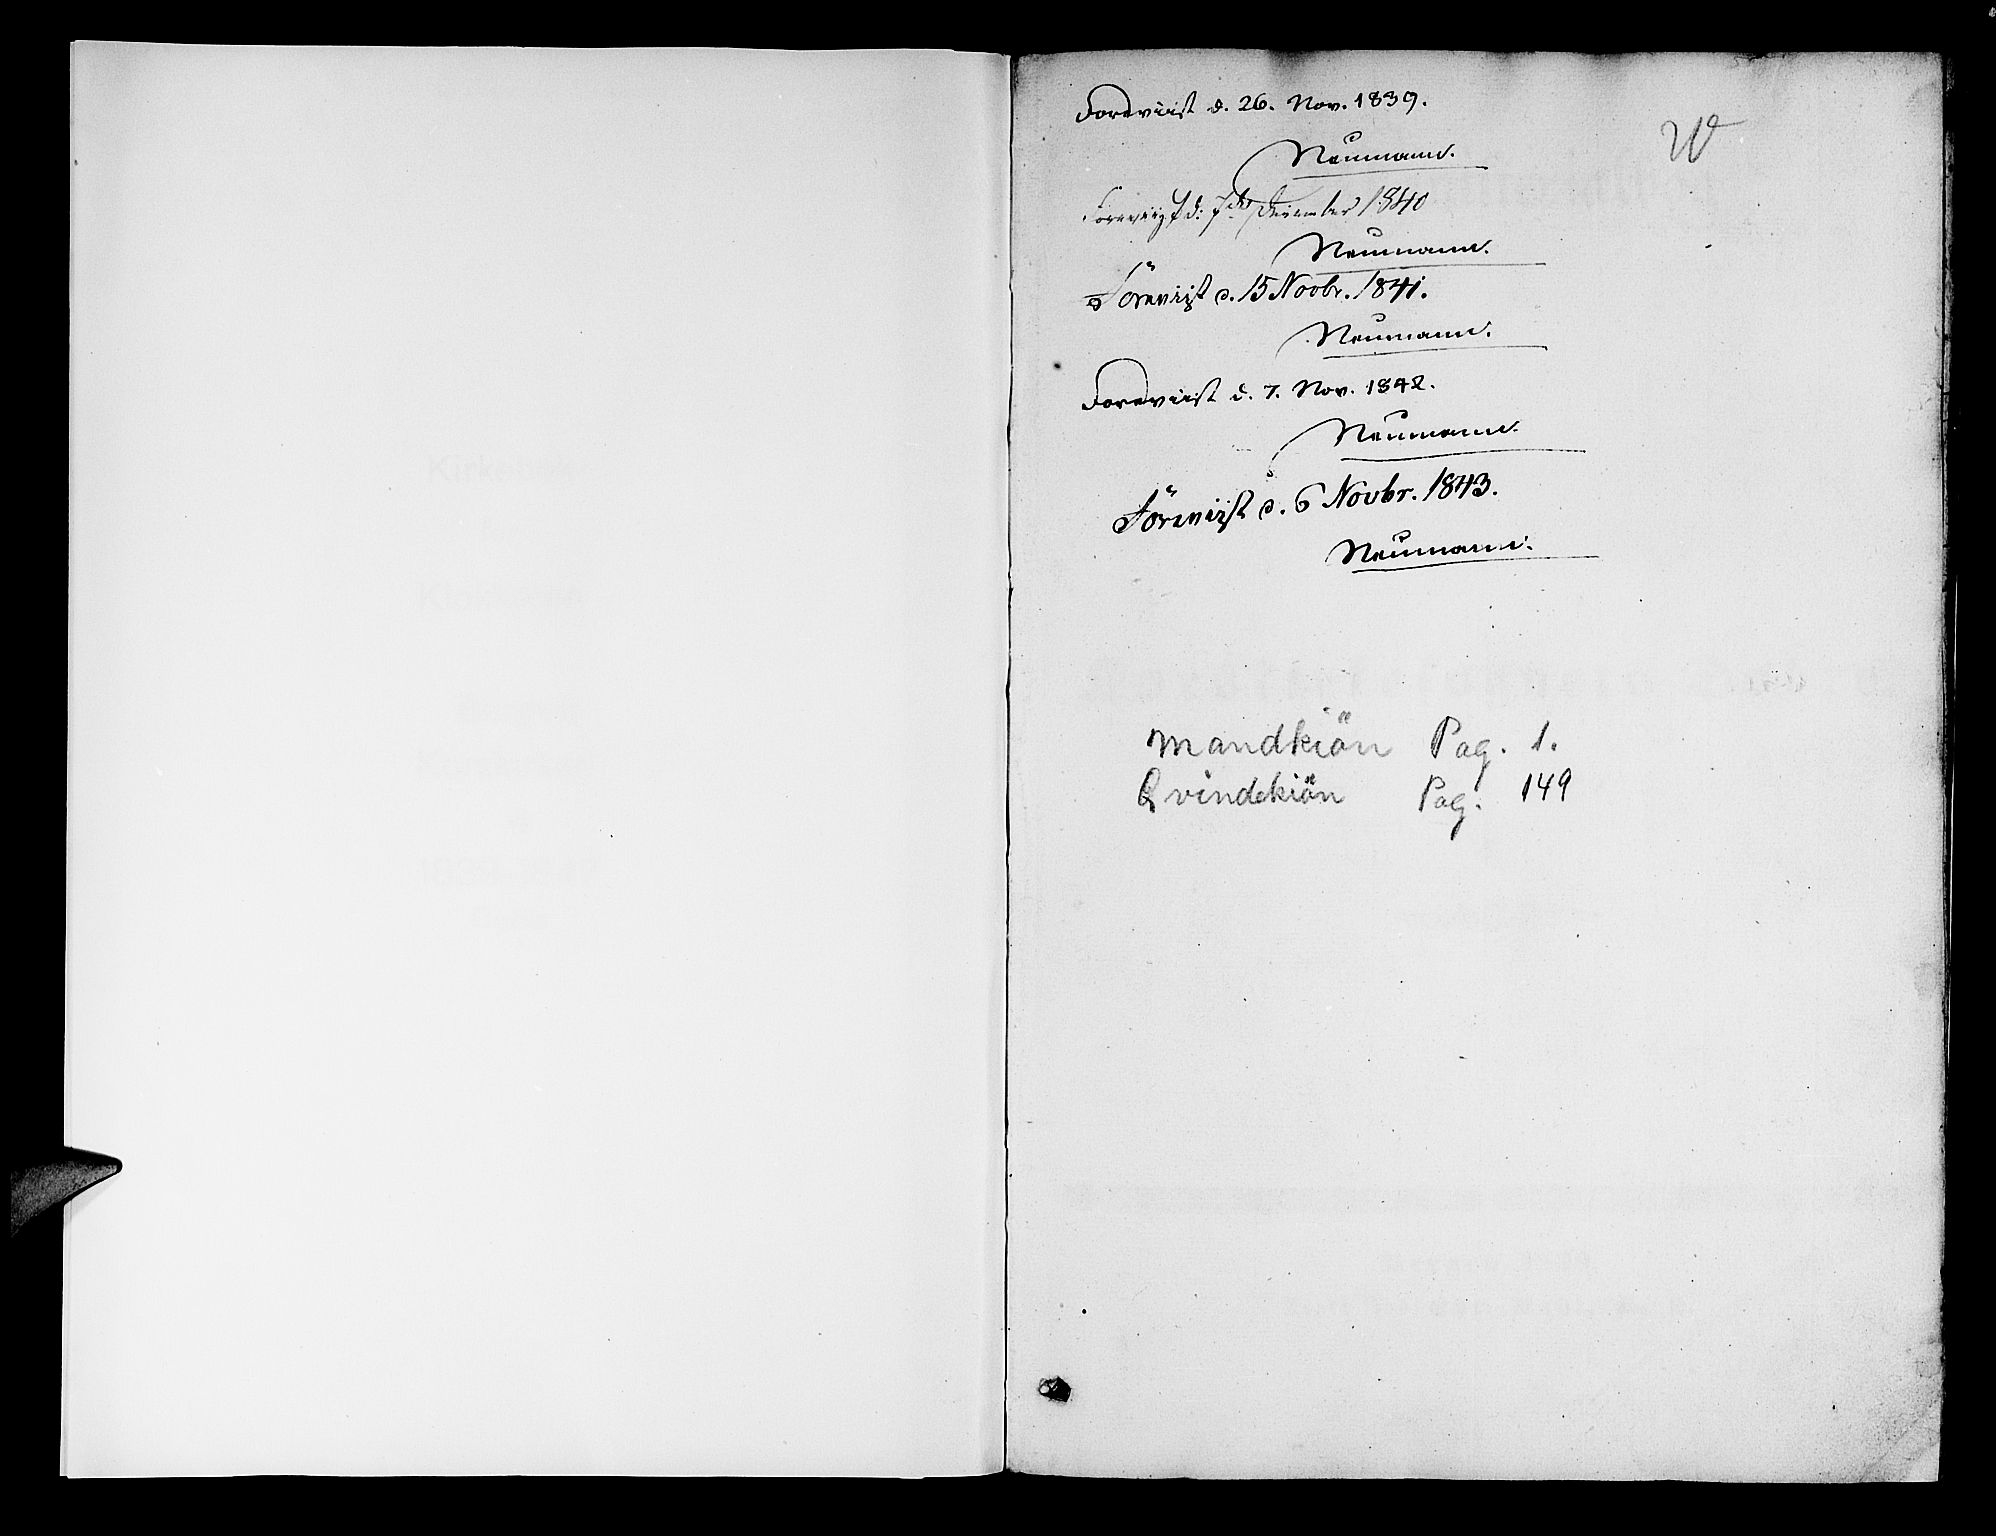 Foreviist d. 26. Nov. 1839.
Neumann.
W
Foreviist d: 7de December 1840
Neumann.
Föreviist d. 15 Novbr. 1841.
Neumann.
Foreviist d. 7. Nov. 1842.
Neumann.
Föreviist d. 6 Novbr. 1843.
Neumann.
Mandkiön Pag. 1.
Qvindekiön Pag. 149